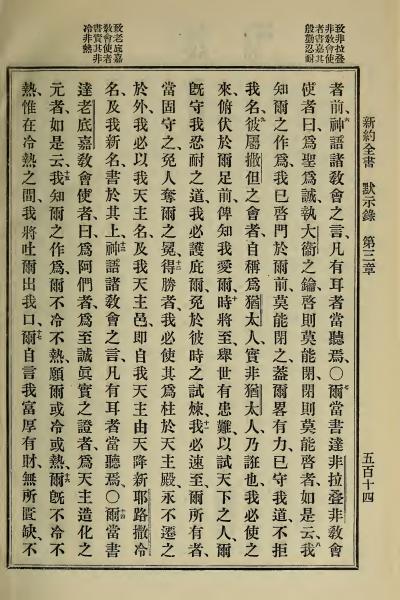 新約全書 默示錄 第三章 五百十四
致非拉疊
非教會使
者書嘉其
殷勤忍耐
致老底嘉
教會使者
書責其非
冷非熱
者前、神語諸教會之言、凡有耳者當聽焉、〇七爾當書達非拉疊非教會
使者曰、爲聖爲誠、執大衞之鑰、啓則莫能閉、閉則莫能啓者、如是云、八我
知爾之作爲、我已啓門於爾前、莫能閉之、蓋爾畧有力、已守我道、不拒
我名、九彼屬撒但之會者、自稱爲猶太人、實非猶太人、乃誑也、我必使之
來、俯伏於爾足前、俾知我愛爾、十時將至、舉世有患難、以試天下之人、爾
旣守我忍耐之道、我必護庇爾、免於彼時之試煉、十一我必速至、爾所有者、
當固守之、免人奪爾之冕、十二得勝者、我必使其爲柱於天主殿、永不遷之
於外、我必以我天主名、及我天主邑、卽自我天主由天降新耶路撒冷
名、及我新名、書於其上、十三神語諸教會之言、凡有耳者當聽焉、〇十四爾當書
達老底嘉教會使者曰、爲阿們者、爲至誠眞實之證者、爲天主造化之
元者、如是云、十五我知爾之作爲、爾不冷不熱、願爾或冷或熱、十六爾旣不冷不
熱、惟在冷熱之間、我將吐爾出我口、十七爾自言我富厚有財、無所匱缺、不